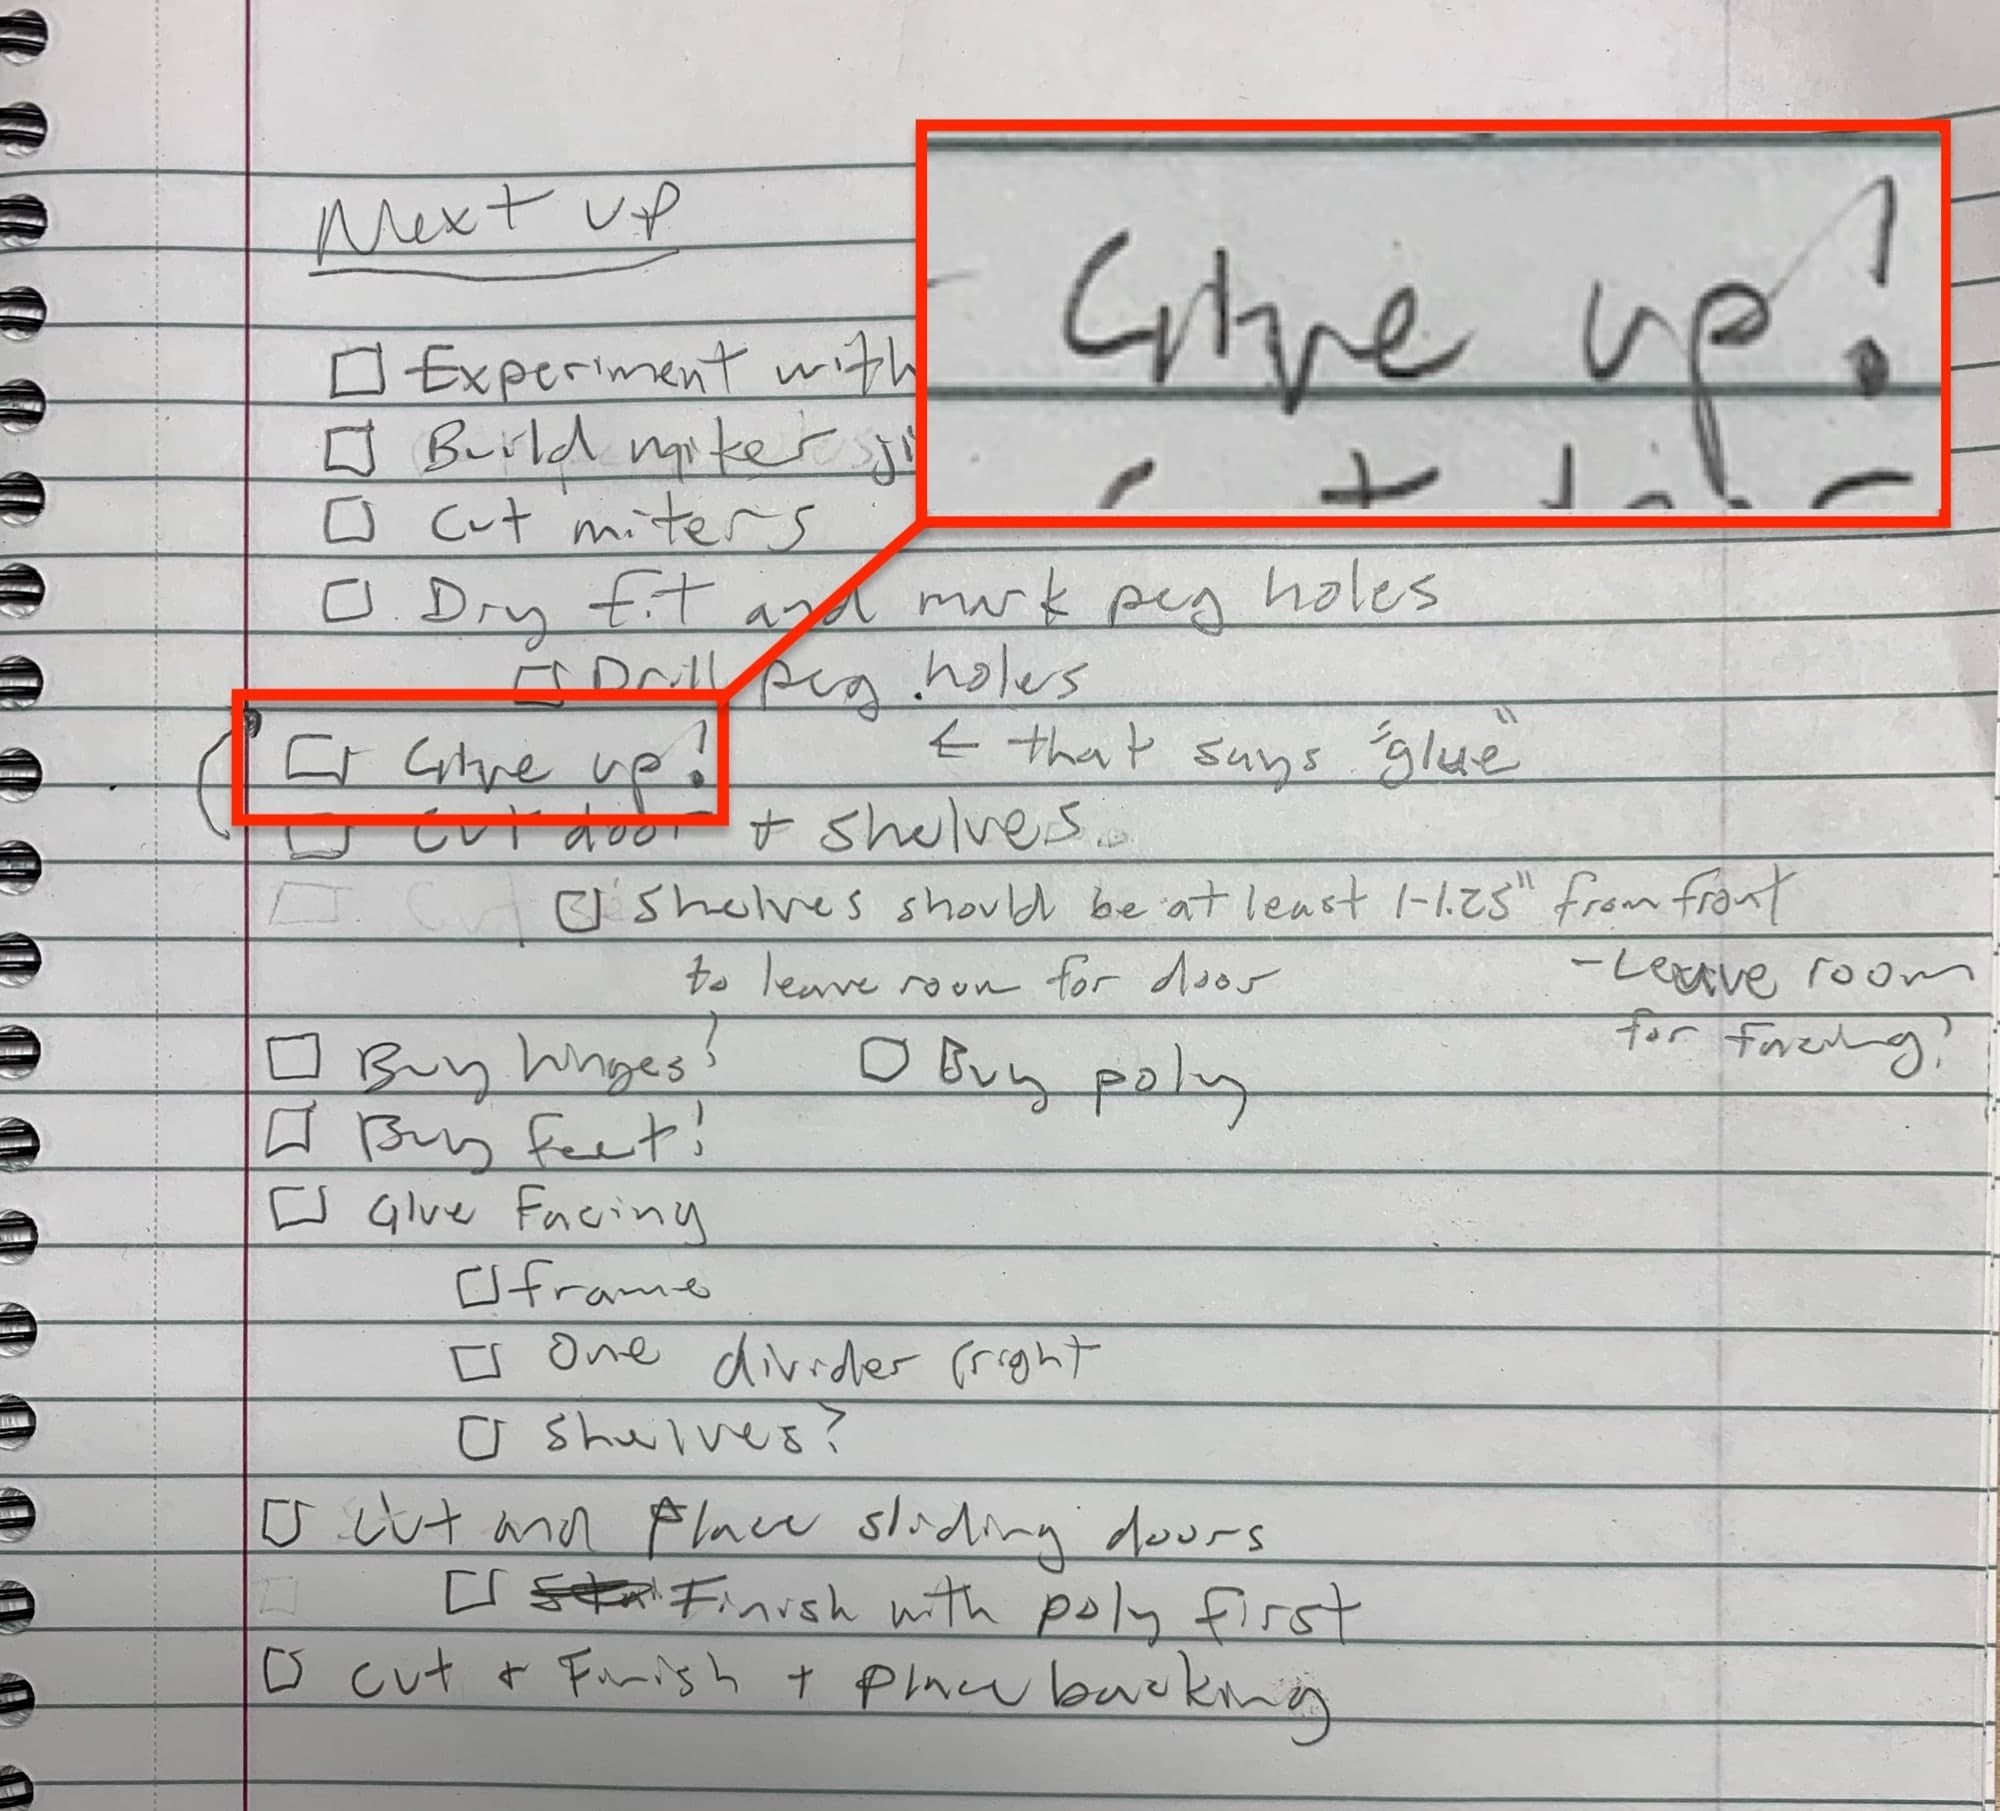 Next up
Glue up!
Experiment with
Build miter ji
Cut miters
Dry fit and mark peg holes
Drill peg holes
Glue up! ← that says "glue"
Cut door + shelves
Shelves should be at least 1-1.25" from front
to leave room for door
-Leave room
for facing?
Buy hinges! Buy poly
Buy feet!
Glue facing
frame
One divider (right
shelves?
Cut and place sliding doors
Finish with poly first
Cut + Finish + place backing